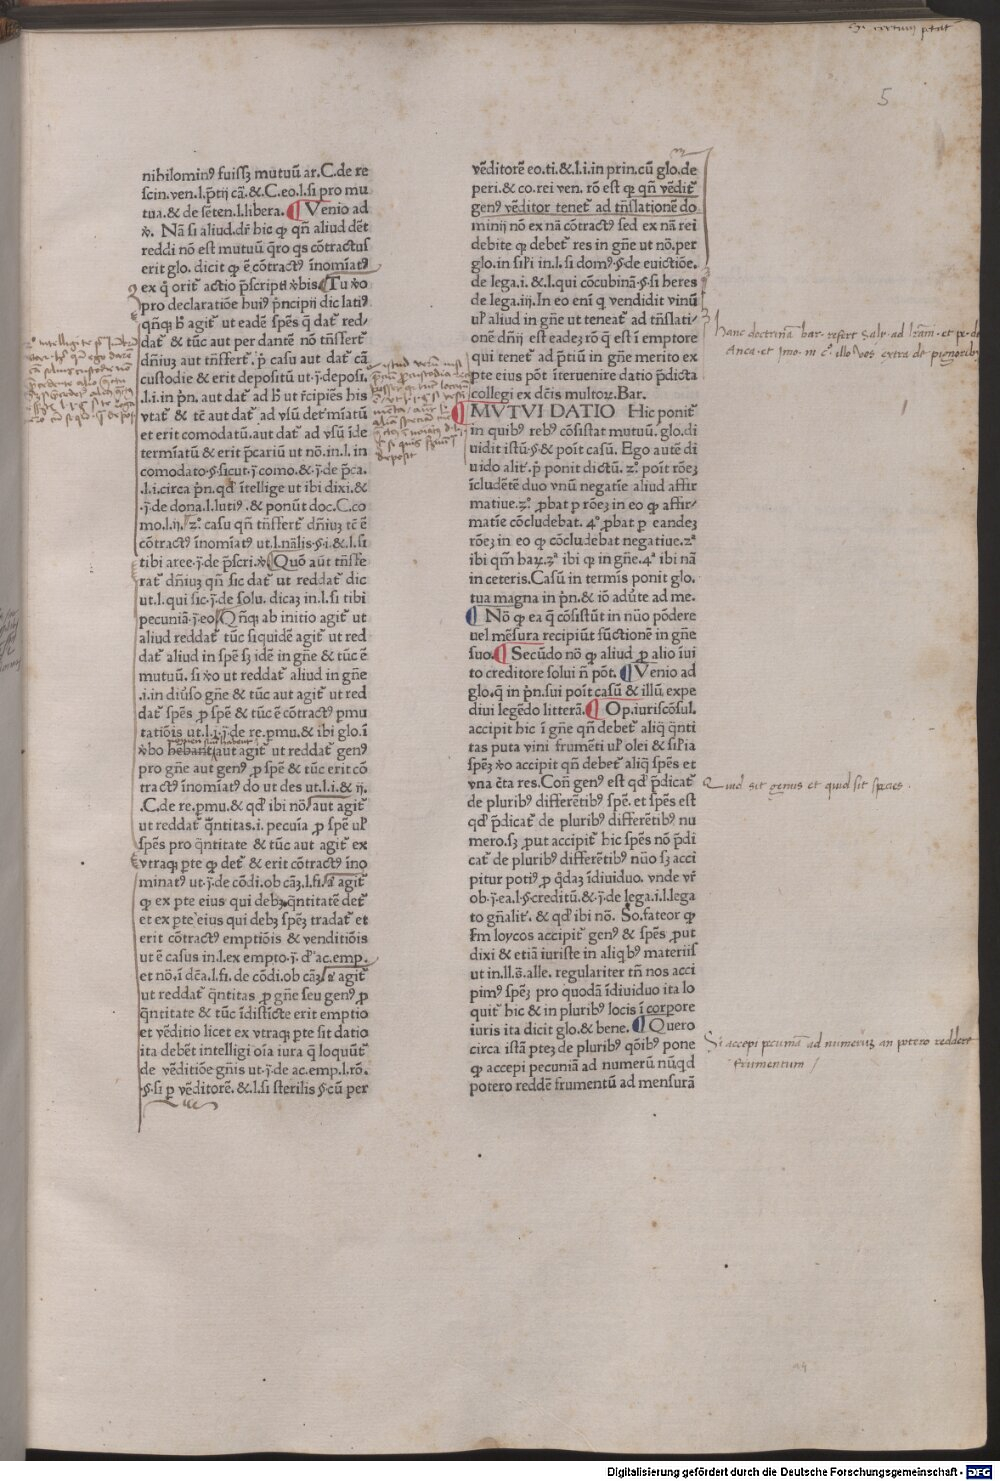 Si certum petat
5
nihilominꝰ fuisſꝫ mutuū ar. C. de re
scin. ven. l. p̄tij cā. &. C. eo. l. si pro mu
tua. & de sēten. l. libera. ¶ Venio ad
ꝟ. Nā si aliud. dr̄ hic ꝙ qn̄ aliud dēt
reddi nō est mutuū q̄ro qs cōtractus
erit glo. dicit ꝙ ē cōtractꝰ īnomīatꝰ
ex q̄ orit̄ actio p̄scriptꝭ ꝟbis. Tu ꝟo
pro declaratiōe huiꝰ p̄ncipij dic latiꝰ
qn̄qꝫ h̄ agit̄ ut eadē spēs q̄ dat̄ red/
dat̄ & tūc aut per dantē nō tn̄sfert̄
dn̄iuꝫ aut tn̄sfert̄. p̄ casu aut dat̄ cā
custodie & erit depositū ut. j. deposi.
.l. i. in p̄n. aut dat̄ ad h̄ ut r̄cipiēs his
vtat̄ & tē aut dat̄ ad vsū det̄miatū
et erit comodatū. aut dat̄ ad vsū īde
termiatū & erit p̄cariū ut nō. in. l. in
comodato. §. sicut. j. como. &. j. de p̄ca.
.l. i. circa p̄n. qd̄ ītellige ut ibi dixi. &
.j. de dona. l. lutiꝰ. & ponūt doc. C. co
mo. l. ij. 2º. casu qn̄ tn̄sfert̄ dn̄iuꝫ tē ē
cōtractꝰ īnomiatꝰ ut. l. nālis. §. i. &. l. si
tibi aree. j. de p̄scri. ꝟ. Quō aūt tn̄sfe
rat̄ dn̄iuꝫ qn̄ sic dat̄ ut reddat̄ dic
ut. l. qui sic. j. de solu. dicaꝫ in. l. si tibi
pecuniā. j. eo. Qn̄qꝫ ab initio agit̄ ut
aliud reddat̄ tūc siquidē agit̄ ut red
dat̄ aliud in spē sꝫ idē in gn̄e & tūc ē
mutuū. si ꝟo ut reddat̄ aliud in gn̄e
.i. in diūso gn̄e & tūc aut agit̄ ut red
dat̄ spēs ꝓ spē & tūc ē cōtractꝰ ꝑmu
tatiōis ut. l. j. j. de re. ꝑmu. & ibi glo. ī
ꝟbo hēbant aut agit̄ ut reddat̄ genꝰ
pro gn̄e aut genꝰ ꝓ spē & tūc erit cō
tractꝰ īnomīatꝰ do ut des ut. l. i. & ij.
.C. de re. ꝑmu. & qd̄ ibi nō. aut agit̄
ut reddat̄ q̄ntitas. i. pecuīa ꝓ spē ul̄
spēs pro q̄ntitate & tūc aut agit̄ ex
vtraqꝫ ꝑte ꝙ det̄ & erit cōtractꝰ īno
minatꝰ ut. j. de cōdi. ob cāꝫ. l. fi. aut agit̄
ꝙ ex ꝑte eius qui debꝫ q̄ntitatē det̄
et ex ꝑte eius qui debꝫ spēꝫ tradat̄ et
erit cōtractꝰ emptiōis & venditiōis
ut ē casus in. l. ex empto. j. d̄ ac. emp.
et nō. ī dc̄a. l. fi. de cōdi. ob cāꝫ aut agit̄
ut reddat̄ q̄ntitas ꝓ gn̄e seu genꝰ ꝓ
q̄ntitate & tūc īdistīcte erit emptio
et vēditio licet ex vtraqꝫ ꝑte sit datio
ita debēt intelligi oīa iura q̄ loquūt̄
de vēditiōe gn̄is ut. j. de ac. emp. l. rō.
.§. si ꝑ vēditorē. &. l. si sterilis. §. cū per
vēditorē eo. ti. &. l. i. in prin. cū glo. de
peri. & co. rei ven. rō est ꝙ qn̄ vēdit̄
genꝰ vēditor tenet̄ ad tn̄slationē do
minij nō ex nā cōtractꝰ sed ex nā rei
debite ꝙ debet̄ res in gn̄e ut nō. per
glo. in sil̄i in. l. si domꝰ. §. de evictiōe.
de lega. i. &. l. qui cōcubinā. §. si heres
de lega. iij. In eo enī q̄ vendidit vinū
ul̄ aliud in gn̄e ut teneat̄ ad tn̄slati/
onē dn̄ij est eadeꝫ rō q̄ est ī emptore
qui tenet̄ ad p̄tiū in gn̄e merito ex
ꝑte eius pōt īteruenire datio p̄dicta
collegi ex dc̄is multoꝝ. Bar.
¶ MVTVI DATIO Hic ponit̄
in quibꝰ rebꝰ cōsistat mutuū. glo. di
uidit istū. §. & poīt casū. Ego autē di
uido alit̄. p̄ ponit dictū. 2º. poīt rōeꝫ
īcludētē duo vnū negatīe aliud affir
matiue. 2º. ꝓbat ꝑ rōeꝫ in eo ꝙ affir/
matīe cōcludebat. 4º. ꝓbat ꝑ eandeꝫ
rōeꝫ in eo ꝙ cōcludebat negatiue. 2ª
ibi qm̄ haꝝ. 2ª ibi ꝙ in gn̄e. 4ª ibi nā
in ceteris. Casū in termis ponit glo.
tua magna in p̄n. & iō adūte ad me.
¶ Nō ꝙ ea q̄ cōsistūt in nūo pōdere
uel mēsura recipiūt fūctionē in gn̄e
suo. ¶ Secūdo nō ꝙ aliud ꝓ alio īui
to creditore solui n̄ pōt. ¶ Venio ad
glo. q̄ in p̄n. sui poīt casū & illū expe
diui legēdo litterā. ¶ Op. iuriscōsul.
accipit hic ī gn̄e qn̄ debet̄ aliq̄ q̄nti
tas puta vini frumēti ul̄ olei & sil̄ia
spēꝫ ꝟo accipit qn̄ debet̄ aliq̄ spēs et
vna c̄ta res. Con̄ genꝰ est qd̄ p̄dicat̄
de pluribꝰ differētibꝰ spē. et spēs est
qd̄ p̄dicat̄ de pluribꝰ differētibꝰ nu
mero. sꝫ ꝓut accipit̄ hic spēs nō p̄di
cat̄ de pluribꝰ differētibꝰ nūo sꝫ acci
pitur potiꝰ ꝓ q̄daꝫ īdiuiduo. vnde vr̄
ob. j. ea. l. §. creditū. &. j. de lega. i. l. lega
to gn̄alit̄. & qd̄ ibi nō. So. fateor ꝙ
ſm loycos accipit̄ genꝰ & spēs ꝓut
dixi & etiā iuriste in aliqbꝰ materiis
ut in. ll. s̄. alle. regulariter tn̄ nos acci
pimꝰ spēꝫ pro quodā īdiuiduo ita lo
quit̄ hic & in pluribꝰ locis ī corpore
iuris ita dicit glo. & bene. ¶ Quero
circa istā ꝑteꝫ de pluribꝰ qōibꝰ pone
ꝙ accepi pecuniā ad numerū nūqd
potero reddē frumentū ad mensurā
Hanc doctrinā bar. refert Saly. ad
Anca. et Imo. in c. illo vos extra de pignoribꝰ
Quid sit genus et quid sit species.
Si accepi pecuniā ad numerūꝫ an potero reddere
frumentum /
Digitalisierung gefördert durch die Deutsche Forschungsgemeinschaft - DFG